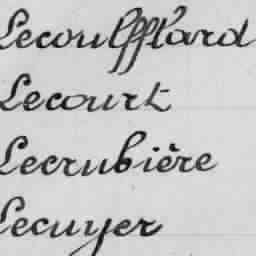 Lecoulfflard
Lecourt
Lecrubière
Lecuyer